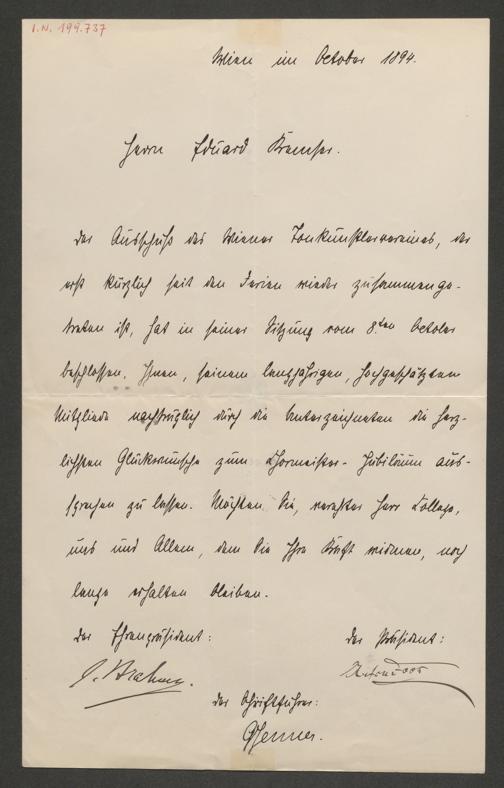 I.N. 199.737
Wien im October 1894.
Herrn Eduard Kremser.
Der Ausschuß des Wiener Tonkünstlervereines, der
erst kürzlich seit den Ferien wieder zusammenge-
treten ist, hat in seiner Sitzung vom 8.ten October
beschlossen, Ihnen, seinem langjährigen, hochgeschätzten
Mitgliede nachträglich durch die Unterzeichneten die herz-
lichsten Glückwünsche zum Chormeister-Jubiläum aus-
sprechen zu lassen. Möchten Sie, verehrter Herr College,
uns und Allem, dem Sie Ihre Kraft widmen, noch
lange erhalten bleiben.
Der Ehrenpräsident:
Der Präsident:
J. Brahms.
AntonDoor
Der Schriftführer:
GJenner.